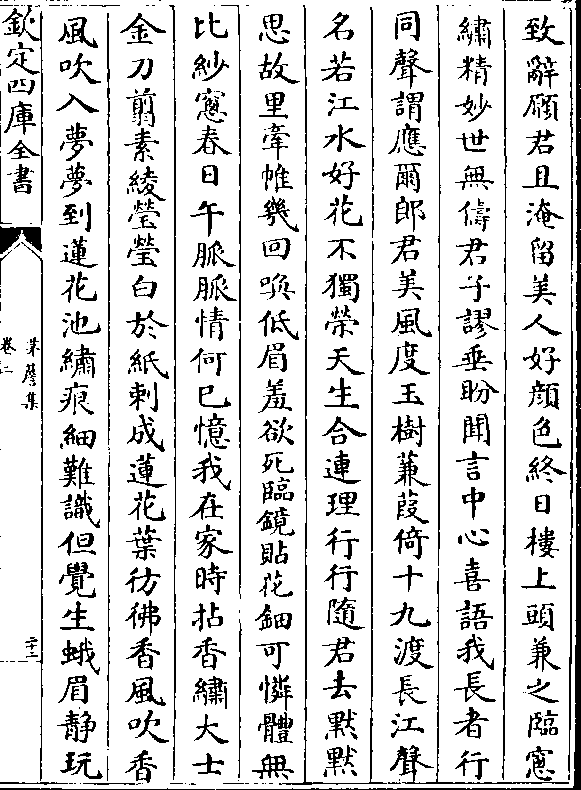 致辭願君且淹留美人好顔色終日樓上頭兼之臨窻
繡精妙世無儔君子謬垂盼聞言中心喜語我長者行
同聲謂應爾郎君美風度玉樹蒹葭倚十九渡長江聲
名若江水好花不獨榮天生合連理行行隨君去默默
思故里牽帷幾回喚低眉羞欲死臨鏡貼花鈿可憐體無
比紗窻春日午脈脈情何已憶我在家時拈香繡大士
金刀翦素綾瑩瑩白於紙刺成蓮花葉彷彿香風吹香
風吹入夢夢到蓮花池繡痕細難識但覺生蛾眉静玩
欽定四庫全書
集
卷二
二十二